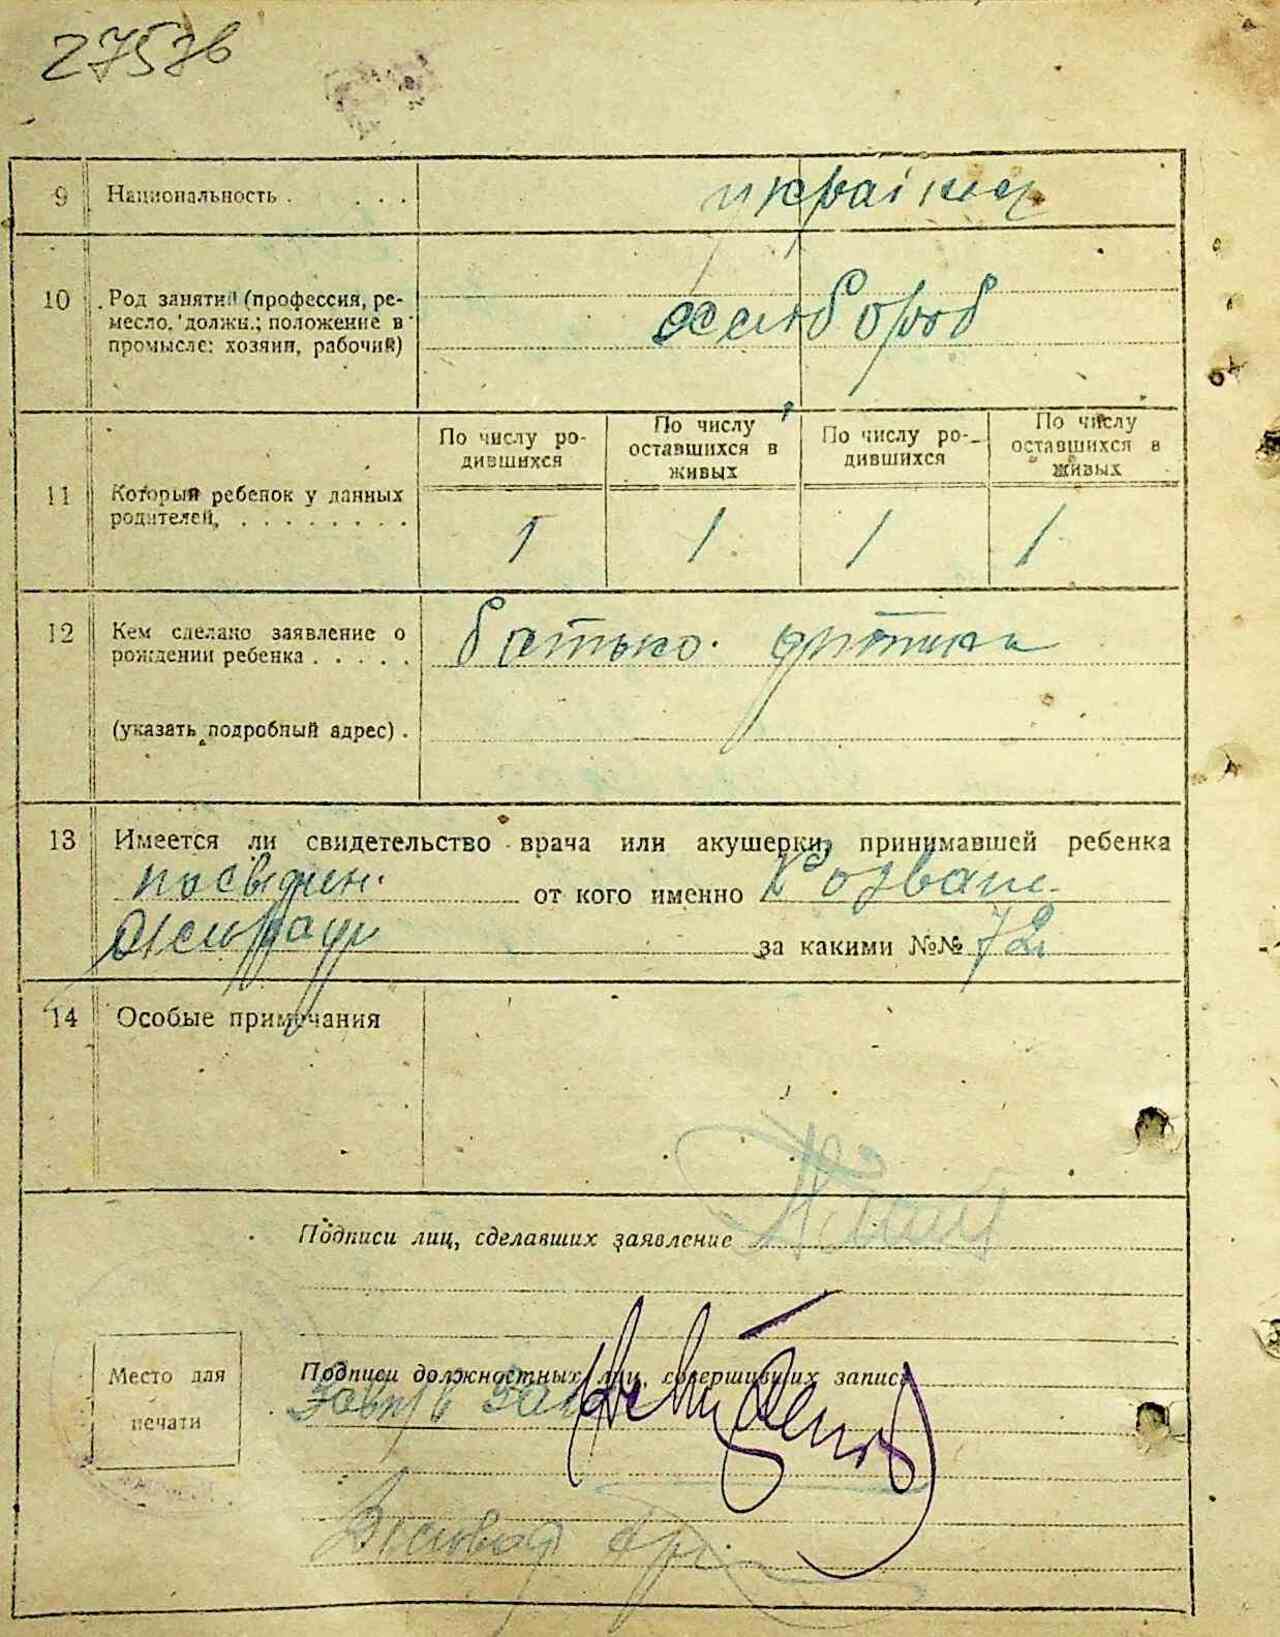 9 Национальность . . . . українец
10 Род занятий (профессия, ре-
месло, должн.; положение в
промысле: хозяин, рабочий)
хлібороб
По числу ро-
дившихся
По числу
оставшихся в
живых
По числу ро-
дившихся
По числу
оставшихся в
живых
11 Который ребенок у данных
родителей, . . . . . . . .
1 1 1 1
12 Кем сделано заявление о
рождении ребенка . . . . .
батько дитини
(указать подробный адрес) .
13 Имеется ли свидетельство врача или акушерки, принимавшей ребенка
посвідчен. от кого именно Розваж.
за какими №№ 72
14 Особые примечания
Подписи лиц, сделавших заявление
Место для
печати
Подписи должностных лиц, совершивших запись